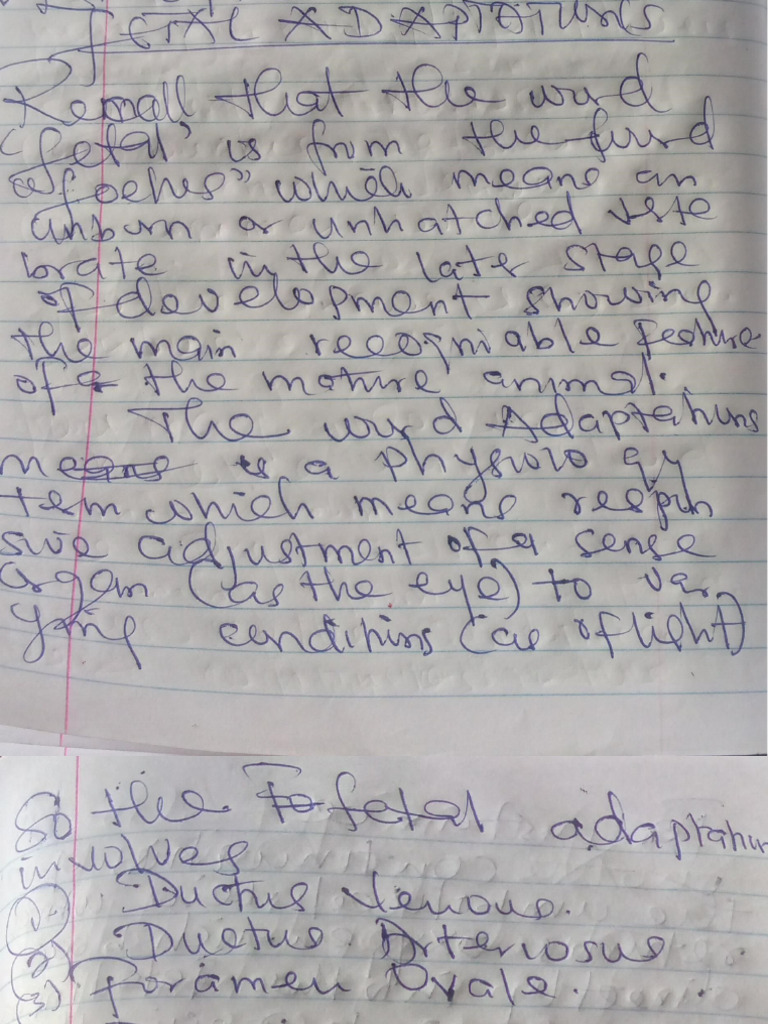 FETAL ADAPTATIONS
Recall that the word
"fetal" is from the word
"foetus" which means an
unborn or unhatched verte
brate in the late stage
of development showing
the main recogniable feature
of the mature animal.
The word Adaptations
means is a physiology
term which means respon
sive adjustment of a sense
organ (as the eye) to var
ying conditions (as of light)
So the fetal adaptation
involves
1. Ductus Venous.
2) Ductus Arteriosus
3) Foramen Ovale.